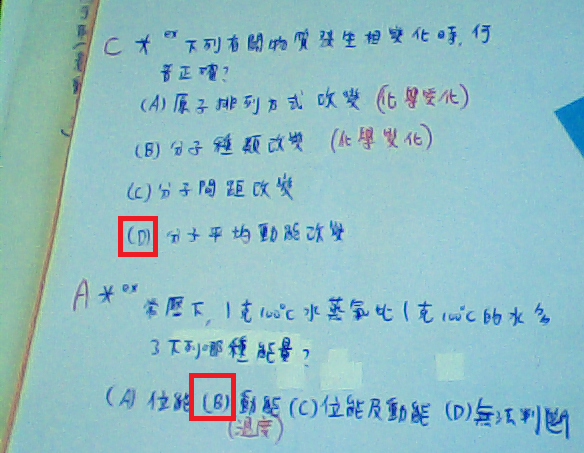 C * ex 下列有關物質發生相變化時,何
者正確?
(A) 原子排列方式改變 (化學變化)
(B) 分子種類改變 (化學變化)
(C) 分子間距改變
(D) 分子平均動能改變
A * ex
常壓下,1克100°C水蒸氣比1克100°C的水多
了下列哪種能量?
(A) 位能 (B) 動能 (C) 位能及動能 (D) 無法判斷
(溫度)